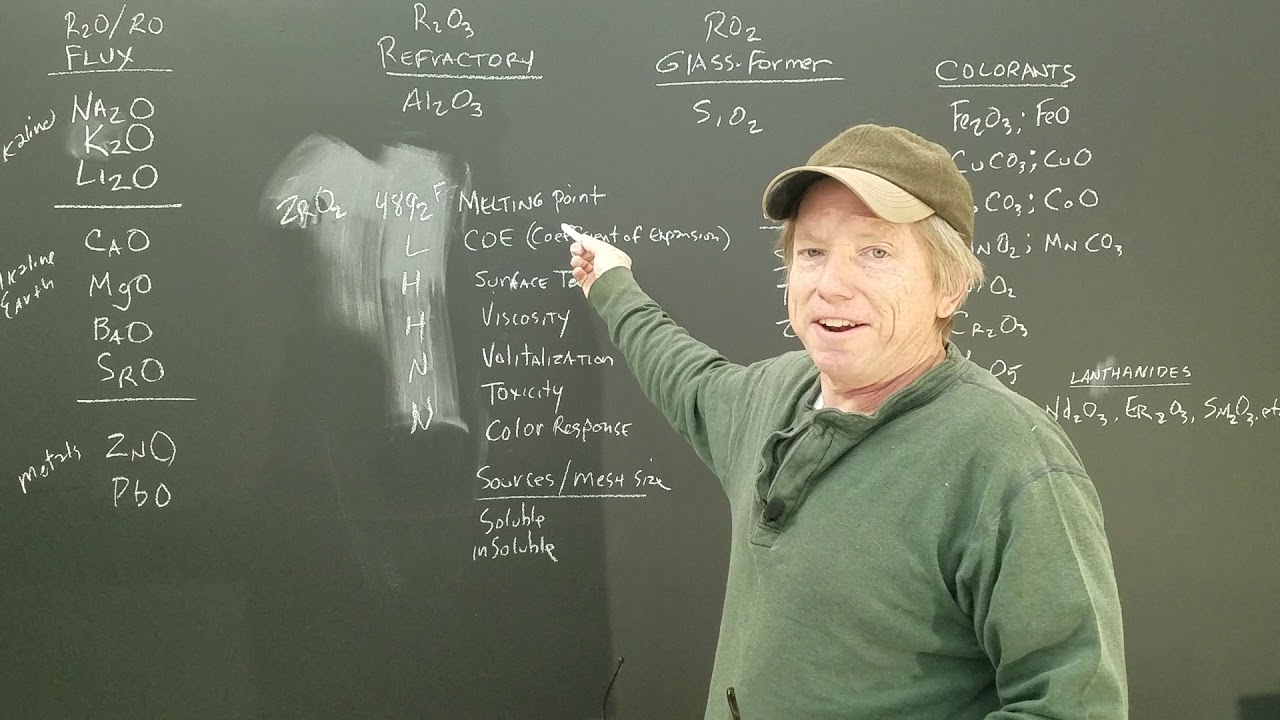 R2O/RO
FLUX
NA2O
K2O
Li2O
CAO
MgO
BAO
SRO
Metals ZNO
PbO
R2O3
REFRACTORY
Al2O3
ZRO2 4892 F MELTING Point
L COE (Coefficient of Expansion)
H Surface
H Viscosity
N Volitalization
N Toxicity
Color Response
Sources/mesh size
Soluble
inSoluble
RO2
Glass-Former
SiO2
COLORANTS
Fe2O3; FeO
CuCO3; CuO
CO3; CoO
O2; MNCO3
O2
CR2O3
O5
LANTHANIDES
Nd2O3, ER2O3, SM2O3, etc